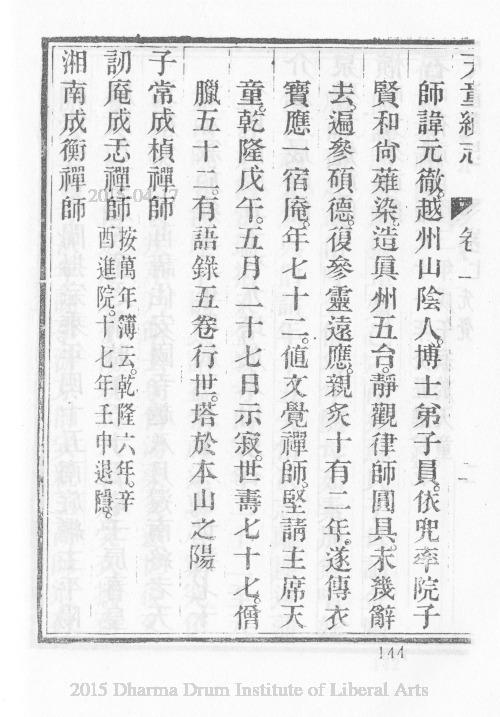 天童續志 卷上
師諱元徹。越州山陰人。博士弟子員。依兜率院子
賢和尙薙染造眞州五台。靜觀律師圓具。未幾辭
去。遍參碩德。復參靈遠應。親炙十有二年。遂傳衣
寶應一宿庵。年七十二。値文覺禪師。堅請主席天
童。乾隆戊午。五月二十七日示寂。世壽七十七。僧
臘五十二。有語錄五卷行世。塔於本山之陽
子常成楨禪師
訒庵成忎禪師 按萬年簿云。乾隆六年。辛
酉進院。十七年壬申退隱。
湘南成衡禪師
144
2015 Dharma Drum Institute of Liberal Arts